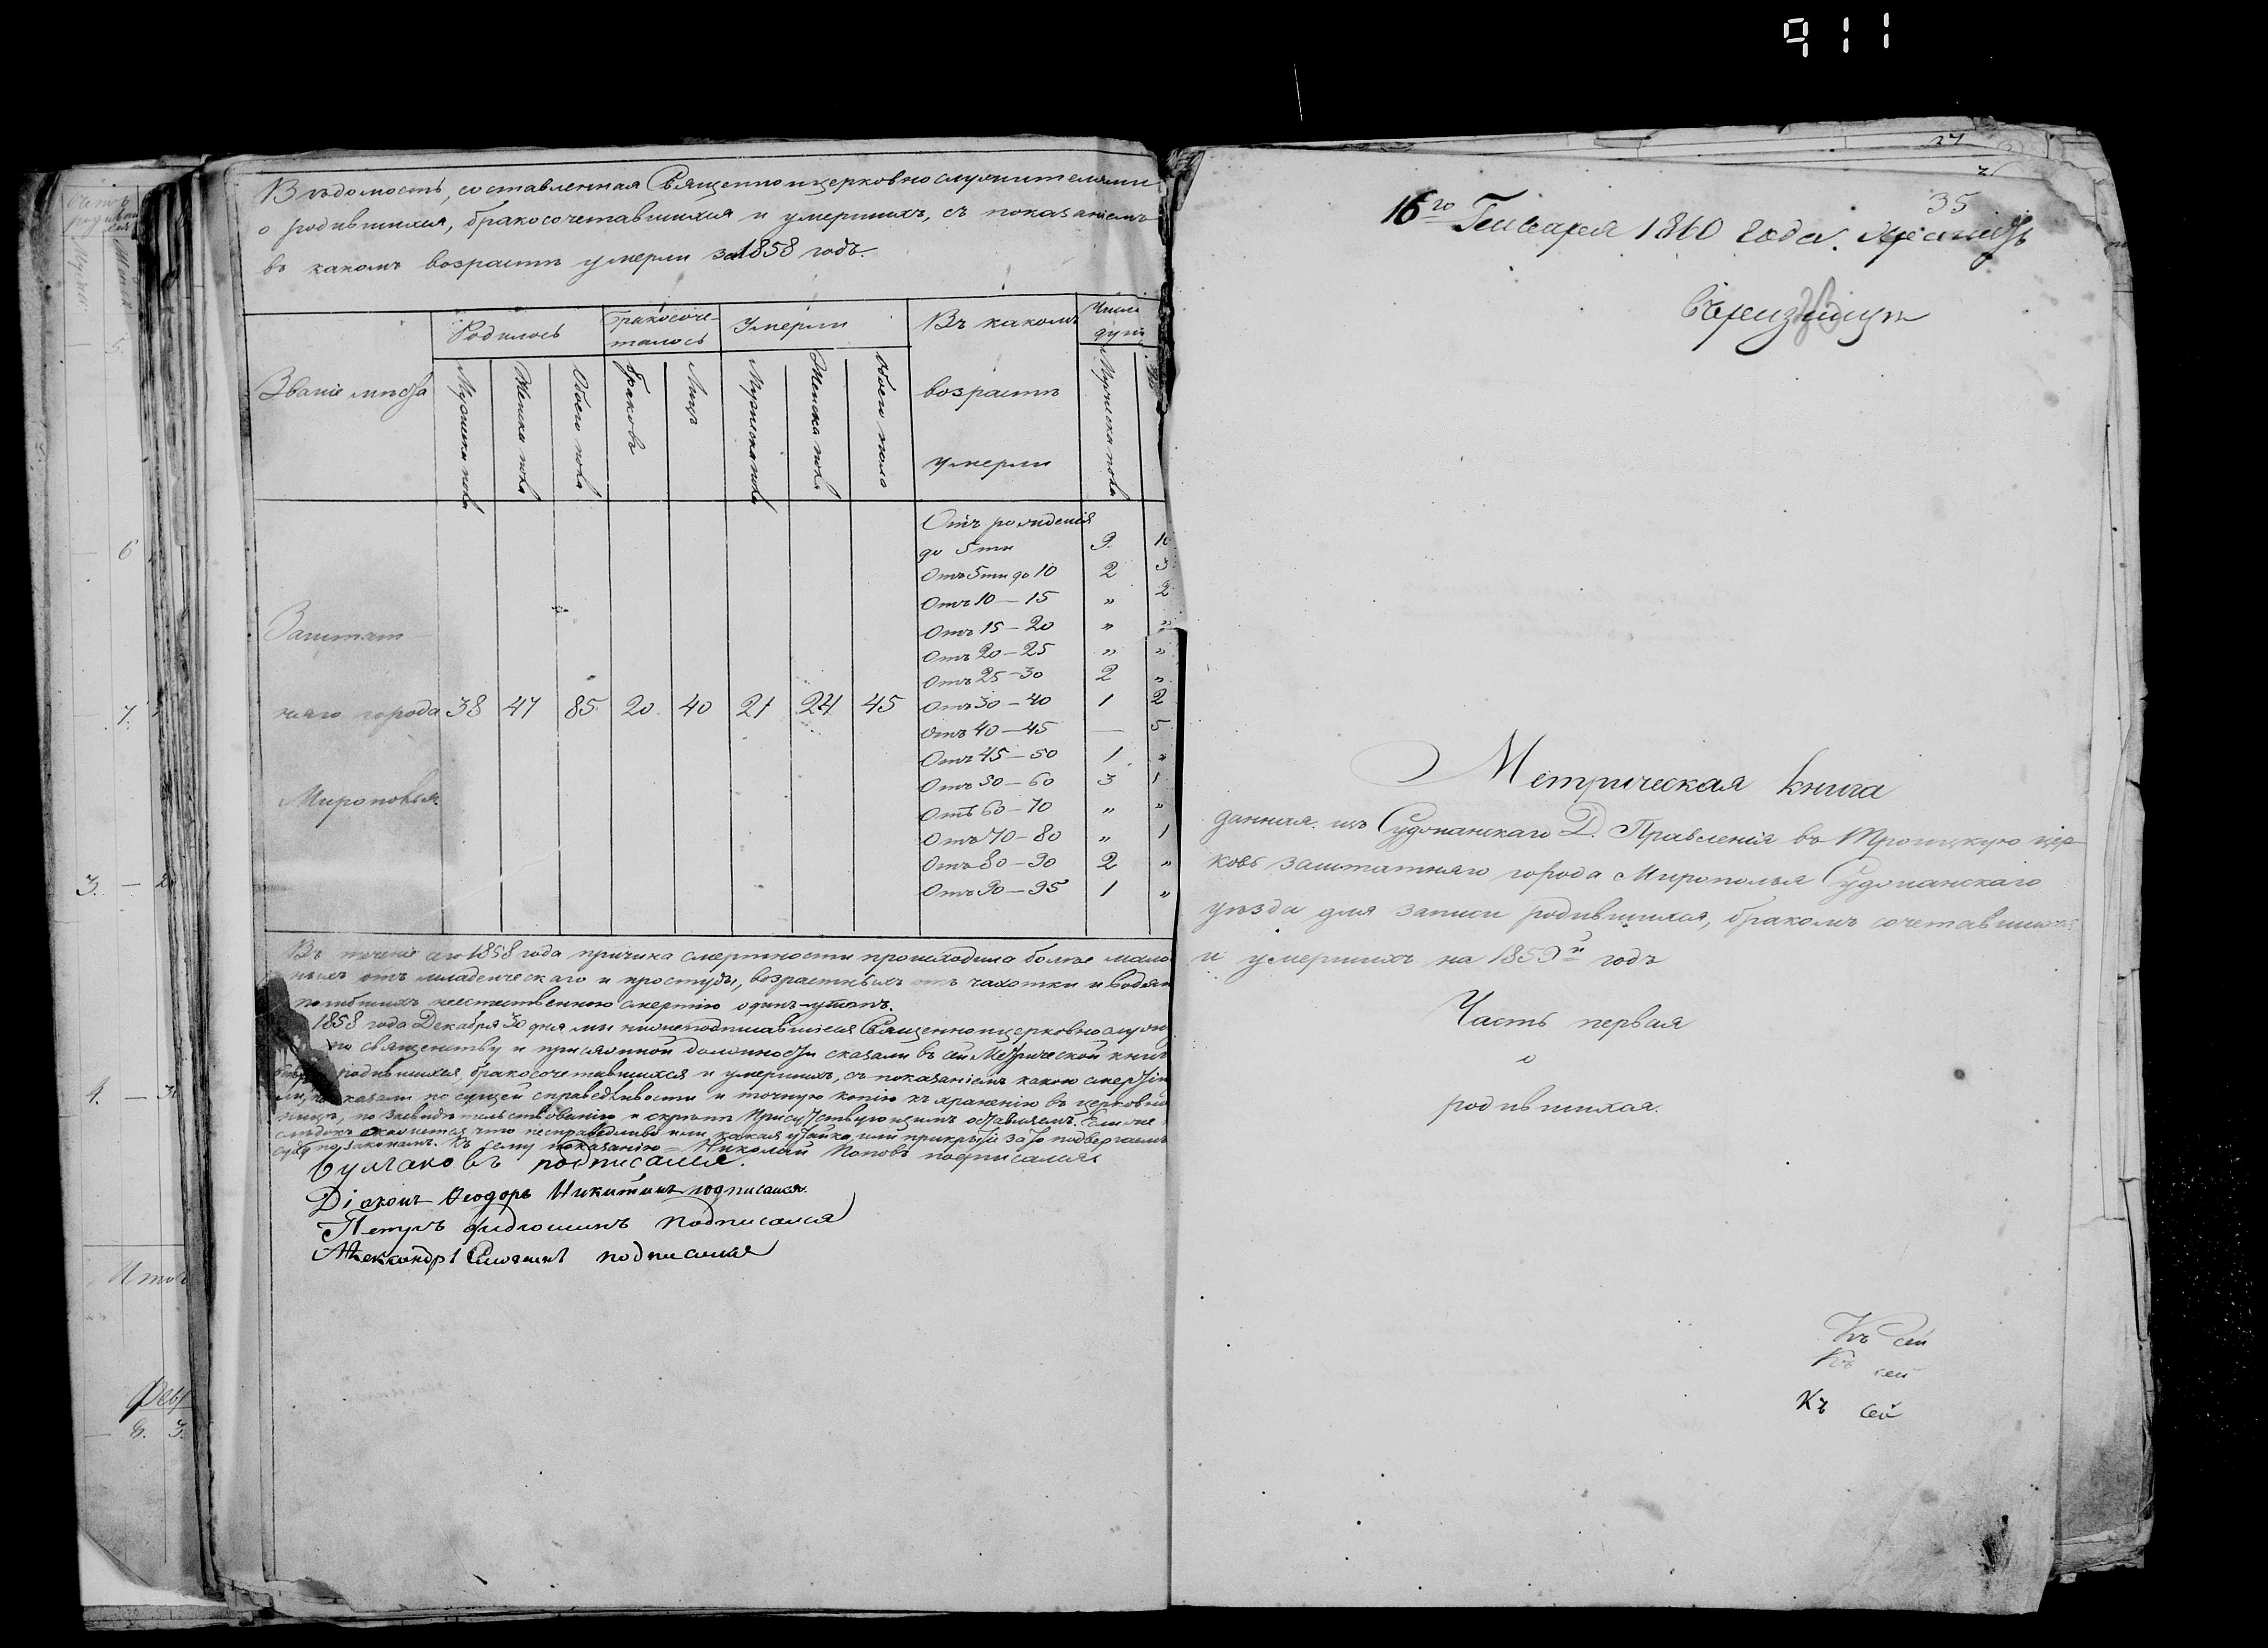 911
Вѣдомость, составленная Священноицерковнослужителями
о родившихся, бракосочетавшихся и умершихъ, съ показаніемъ
въ какомъ возрастѣ умерли за 1858 годъ.
Званіе мѣста
Родилось
Бракосоче-
талось
Умерли
Въ какомъ
возрастѣ
умерли
Число
душъ
Мужеска пола
Женска пола
Обоего пола
Браковъ
Лицъ
Мужеска пола
Женска пола
Обоего пола
Мужеска пола
Отъ рожденія
до 5ти 9 10
Отъ 5ти до 10 2 3
Отъ 10 — 15 „ 2
Отъ 15 — 20 „ „
Отъ 20 — 25 „ „
Отъ 25 — 30 2 „
Отъ 30 — 40 1 2
Отъ 40 — 45 — 5
Отъ 45 — 50 1 „
Отъ 50 — 60 3 1
Отъ 60 — 70 „ „
Отъ 70 — 80 „ 1
Отъ 80 — 90 2 „
Отъ 90 — 95 1 „
Заштат
наго города 38 47 85 20 40 21 24 45
Мирополья
Въ теченіе 1858 года причина смертности происходила болѣе мало
отъ младенческаго и простуды, возрастныхъ отъ чахотки и водян
погибшихъ неестественною смертію одинъ
1858 года Декабря 30 дня мы нижеподписавшіеся Священноицерковнослуж
по священству и присяжной должности сказали въ сей Метрической книг
родившихся, бракосочетавшихся и умершихъ, съ показаніемъ какою смертію
показали по сущей справедливости и точную копію къ храненію въ церковно
по засвидѣтельствованію и скрѣпѣ Присутствующимъ оставляемъ. Если
окажется что несправедливо или какая утайка, или прикрытіе за то подвергаемъ
суду по законамъ. Къ сему показанію Николай Поповъ подписался.
Булгаковъ подписался.
Діаконъ Ѳеодоръ Никитинъ подписался.
Петръ подписался
Александръ подписался
27
35
16го Генваря 1860 года.
Метрическая книга
данная изъ Суджанскаго Д. Правленія въ Троицкую цер-
ковь заштатнаго города Мирополья Суджанскаго
уѣзда для записи родившихся, бракомъ сочетавшихся
и умершихъ на 1859й годъ
Часть первая
о
родившихся.
Къ сей
Къ сей
Къ сей
6
7.
3. — 2
4. — 3
Итого